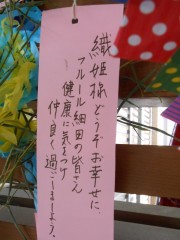 織姫様どうぞお幸せに、
フルール細田の皆さん
健康に気をつけ
仲良く過ごしましょう。